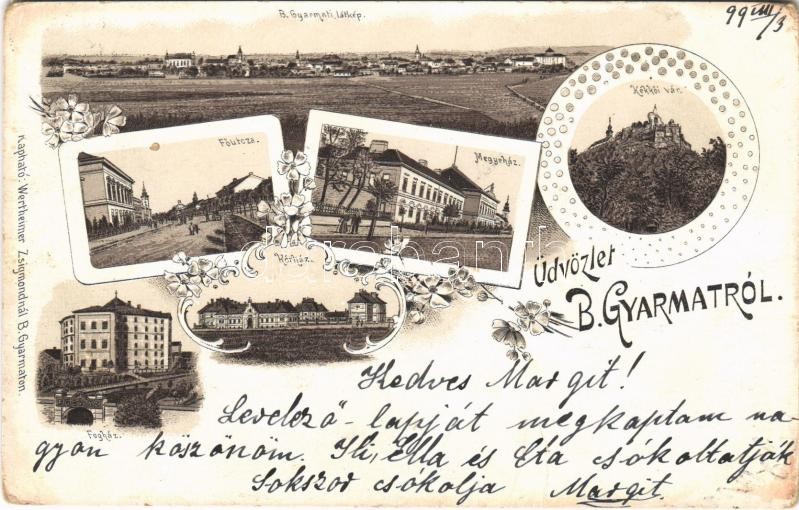 B. Gyarmati látkép.
99 III/3
Kékkői vár.
Főutcza.
Megyeház.
Kórház.
Fogház.
Üdvözlet
B. GYARMATRÓL.
Kapható: Wertheimer Zsigmondnál B. Gyarmaton.
darabanth
Kedves Margit!
Levelező-lapját megkaptam na-
gyon köszönöm. Ili, Ella és Eta csókoltatják
Sokszor csókolja Margit.